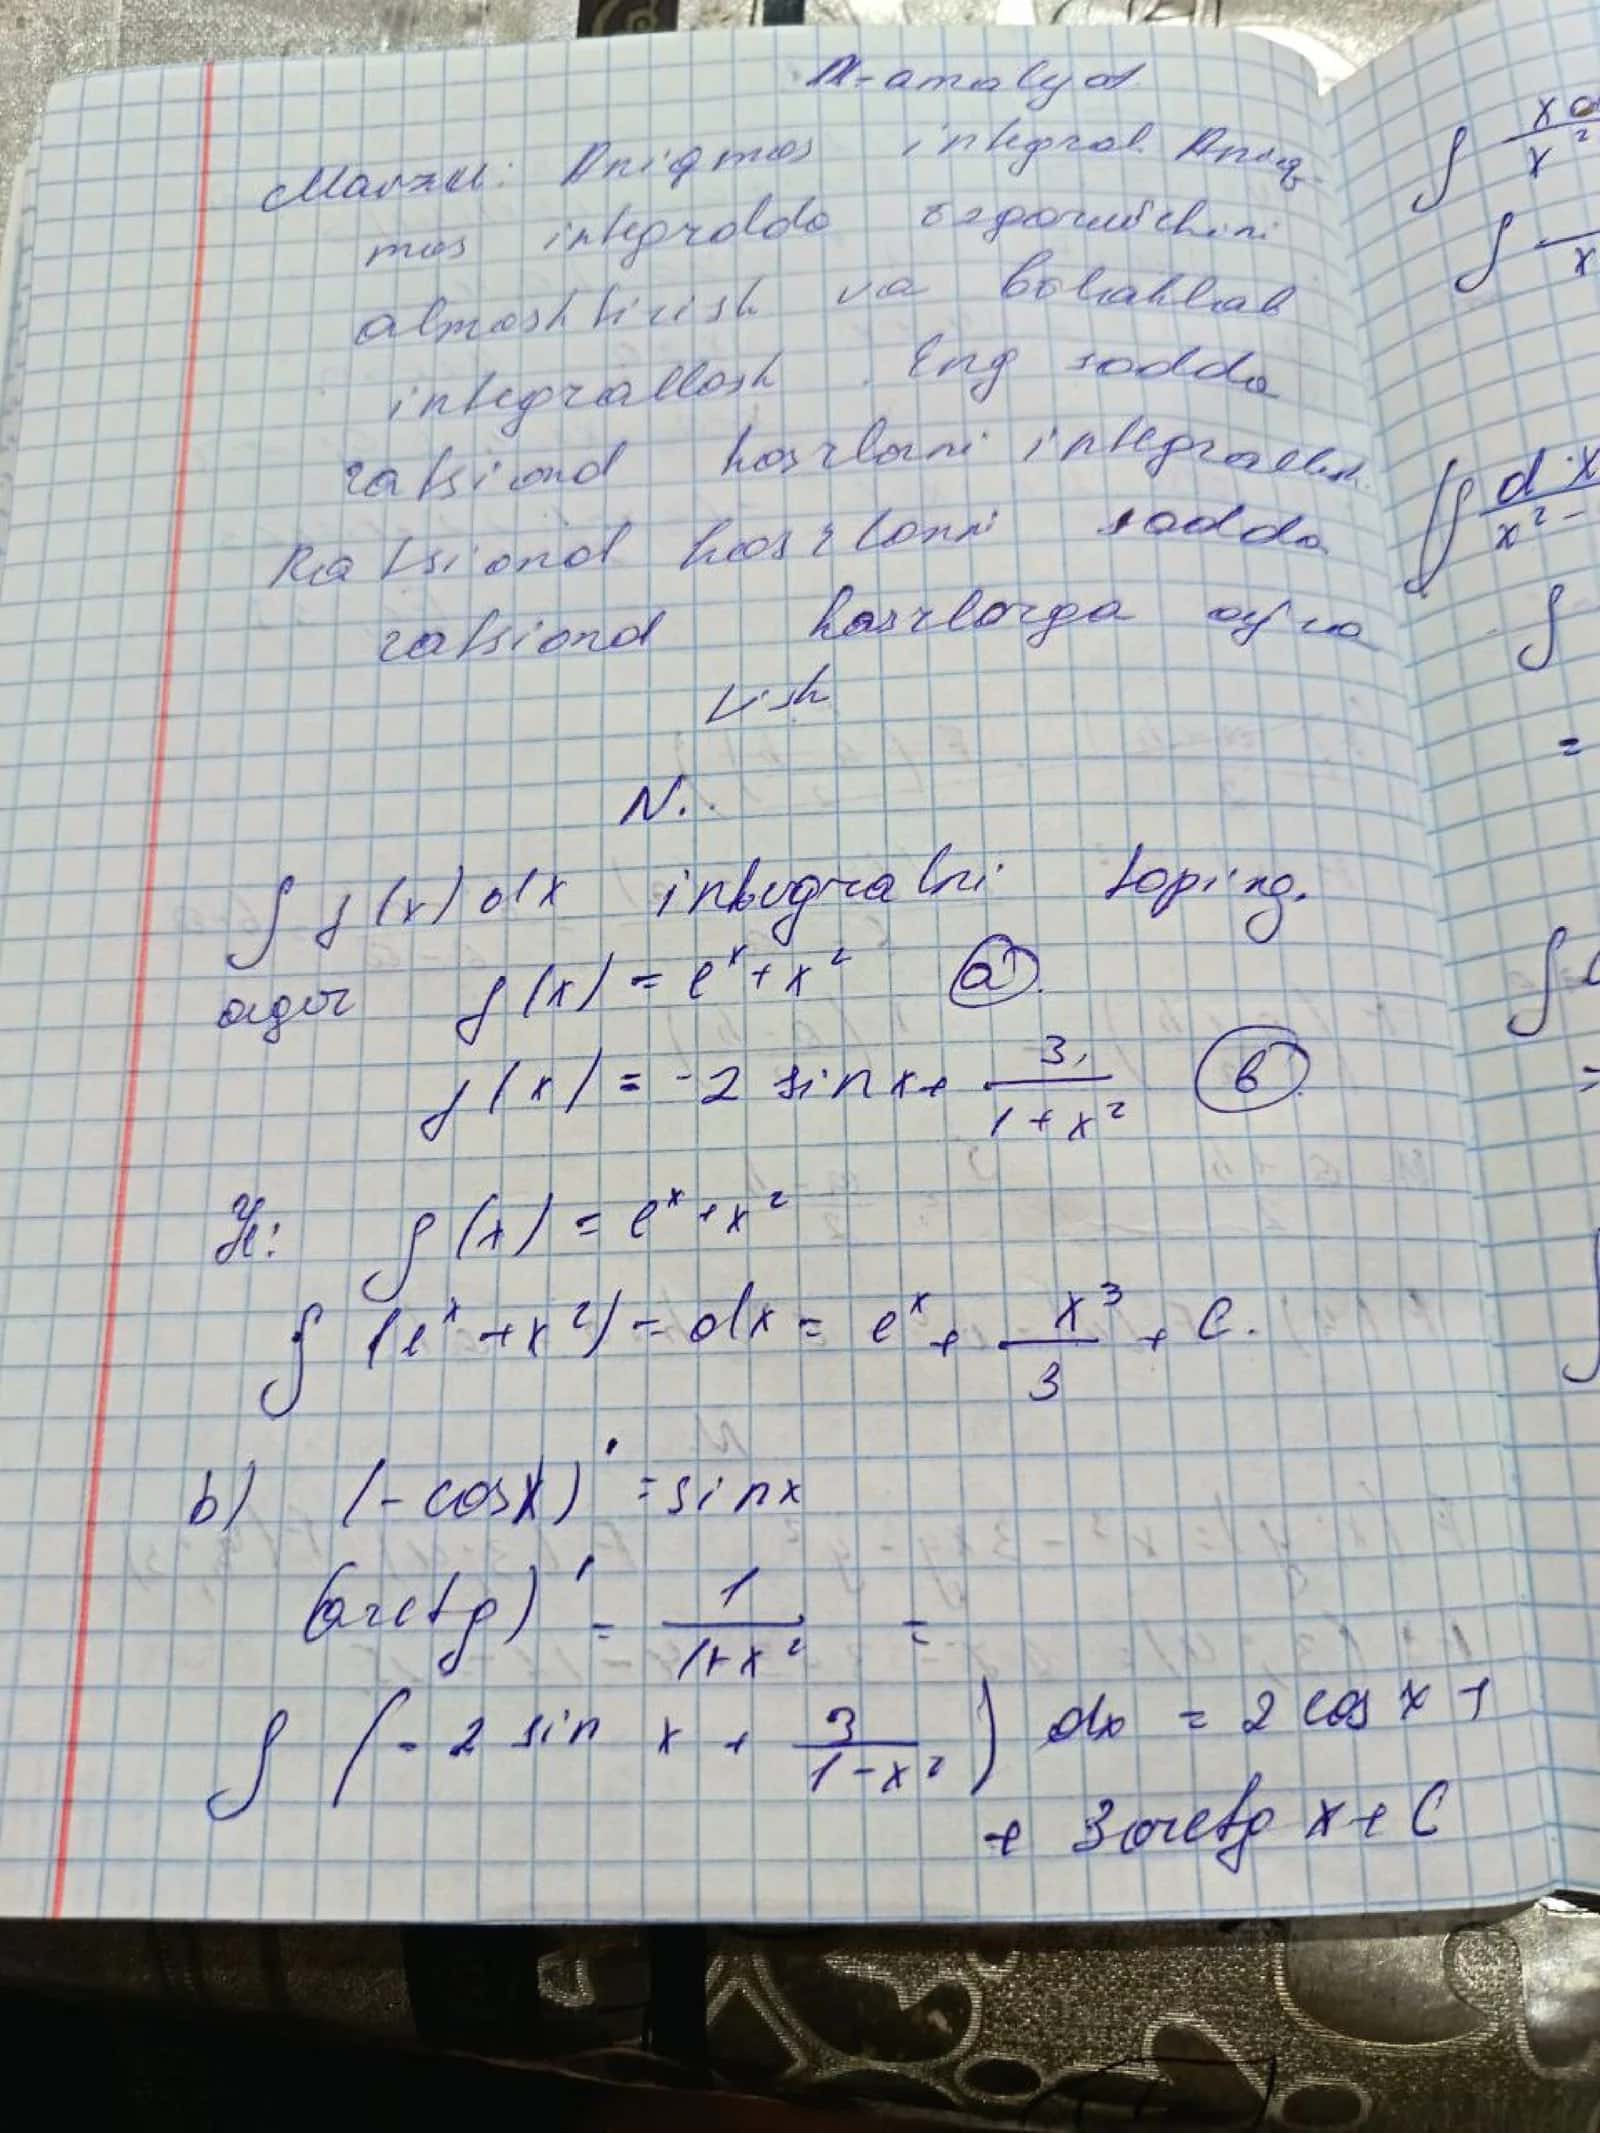 M-analyz
Mavzu: Aniqmas integral. Aniq-
mas integralda o'zgaruvchini
almashtirish va bo'laklab
integrallash. Eng sodda
ratsional kasrlarni integrallash.
Ratsional kasrlarni sodda
ratsional kasrlarga ajra
tish
N.
∫ f(x) dx integralni toping.
agar f(x) = e^x + x^2 (a)
f(x) = -2 sin x + 3/(1+x^2) (b)
f(x) = e^x + x^2
∫ (e^x + x^2) - dx = e^x + x^3/3 + C.
b) (-cosx)' = sinx
(arctg)' = 1/(1+x^2) =
∫ (-2 sin x + 3/(1-x^2)) dx = 2 cos x +
+ 3arctg x + C
∫
x^2
∫
x
∫ dx
x^2 -
∫
=
∫
=